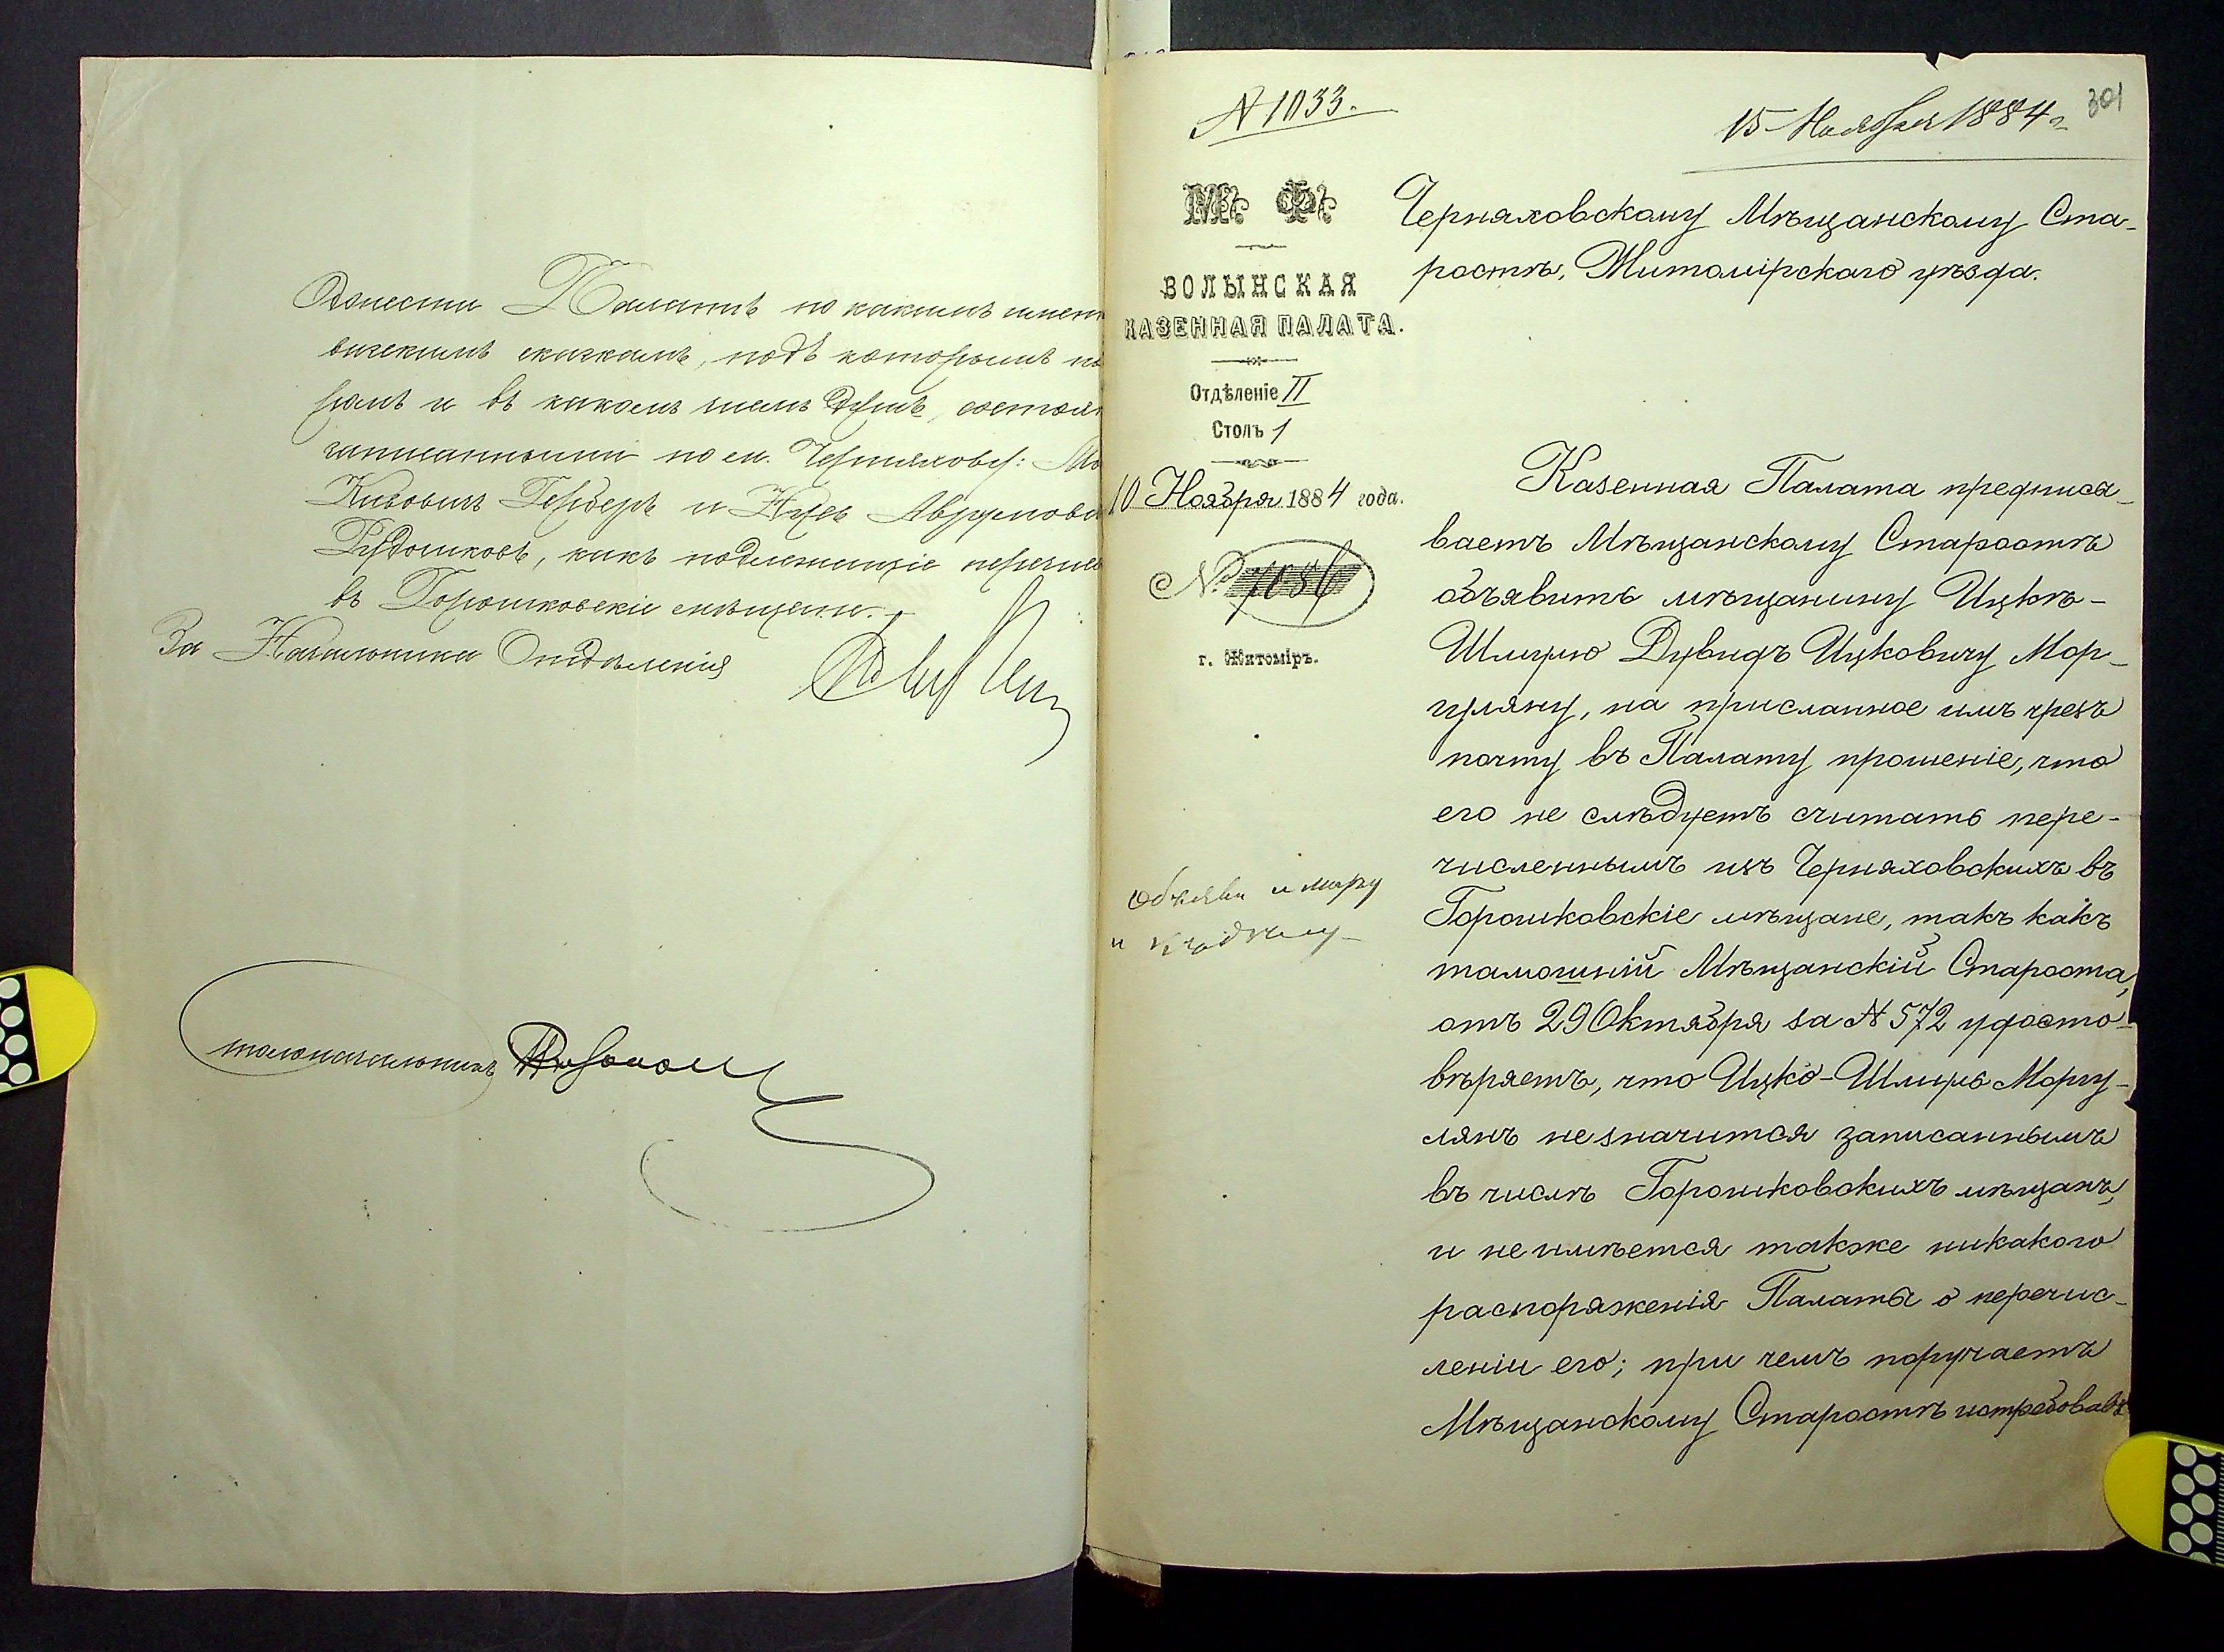 донести Палатѣ по какимъ имен
вижскимъ сказкамъ, подъ которымъ но
ромъ и въ какомъ числѣ душъ, состоя
записанными по м. Черняхову: Мо
Кивовичъ Герберъ и Нусь Аврумови
Рудошковъ, какъ подлежащіе перечис
въ Горошковскіе мѣщане.
За Начальника Отдѣленія
Столоначальникъ
№ 1033.
15 Ноября 1884 г.
301
М. Ф.
ВОЛЫНСКАЯ
КАЗЕННАЯ ПАЛАТА.
Отдѣленіе II
Столъ 1
10 Ноября 1884 года.
№ 7086
г. Житоміръ.
Объяви и мару
и
Черняховскому Мѣщанскому Ста-
ростѣ, Житомірскаго уѣзда.
Казенная Палата предписы-
ваетъ Мѣщанскому Старостѣ
объявить мѣщанину Ицкѣ-
Шлицлю Дувидъ Ицковичу Мор-
гуляну, на присланное имъ чрезъ
почту въ Палату прошеніе, что
его не слѣдуетъ считать пере-
численнымъ изъ Черняховскихъ въ
Горошковскіе мѣщане, такъ какъ
тамошній Мѣщанскій Староста,
отъ 29 Октября за № 572 удосто-
вѣряетъ, что Ицко-Шлицль Моргу-
лянъ незначится записаннымъ
въ числѣ Горошковскихъ мѣщанъ,
и неимѣется также никакого
распоряженія Палаты о перечис-
леніи его; при чемъ поручаетъ
Мѣщанскому Старостѣ истребовавъ